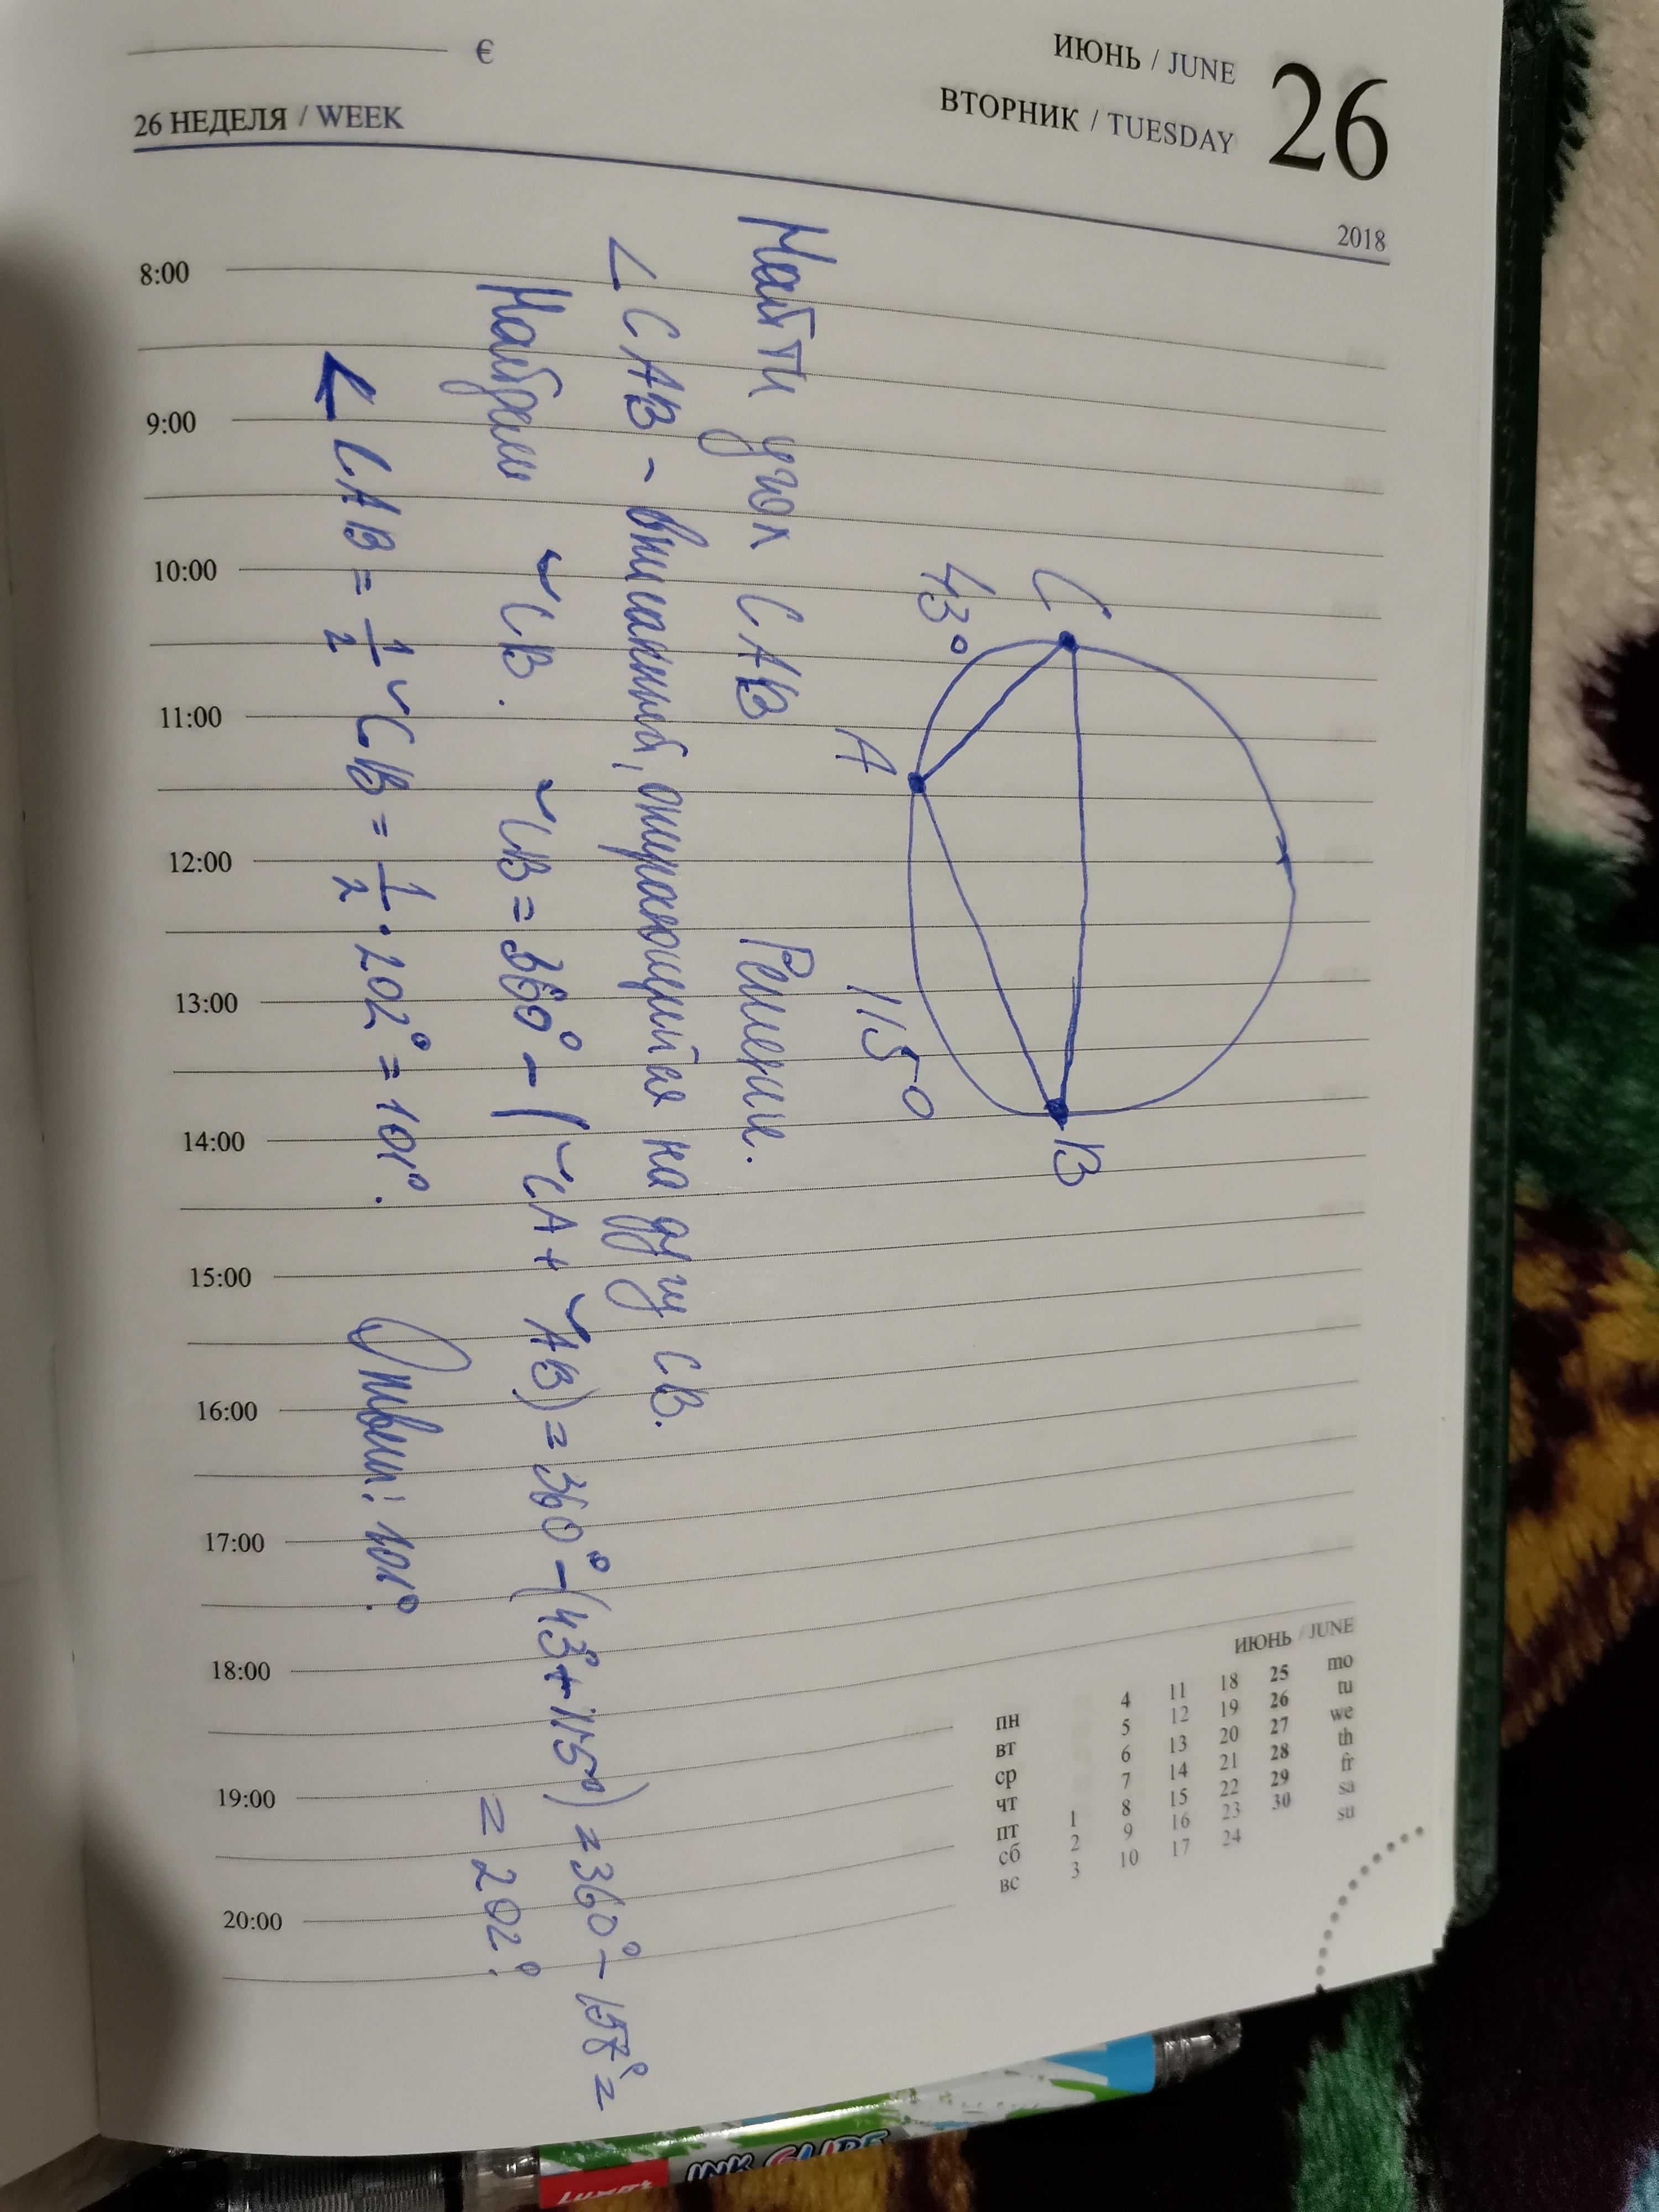 €
ИЮНЬ / JUNE
26
26 НЕДЕЛЯ / WEEK
ВТОРНИК / TUESDAY
2018
8:00
9:00
10:00
11:00
12:00
13:00
14:00
15:00
16:00
17:00
18:00
19:00
20:00
C
B
43°
A
115°
Найти угол CAB
Решение.
∠ CAB - вписанный, опирающийся на дугу CB.
Найдем ◡CB. ◡CB = 360° - (◡CA + ◡AB) = 360° - (43° + 115°) = 360° - 158° =
= 202°.
∠ CAB = 1/2 ◡CB = 1/2 · 202° = 101°.
Ответ: 101°.
ИЮНЬ / JUNE
пн 4 11 18 25 mo
вт 5 12 19 26 tu
ср 6 13 20 27 we
чт 7 14 21 28 th
пт 1 8 15 22 29 fr
сб 2 9 16 23 30 sa
вс 3 10 17 24 su
INK GLIDE
Luxor